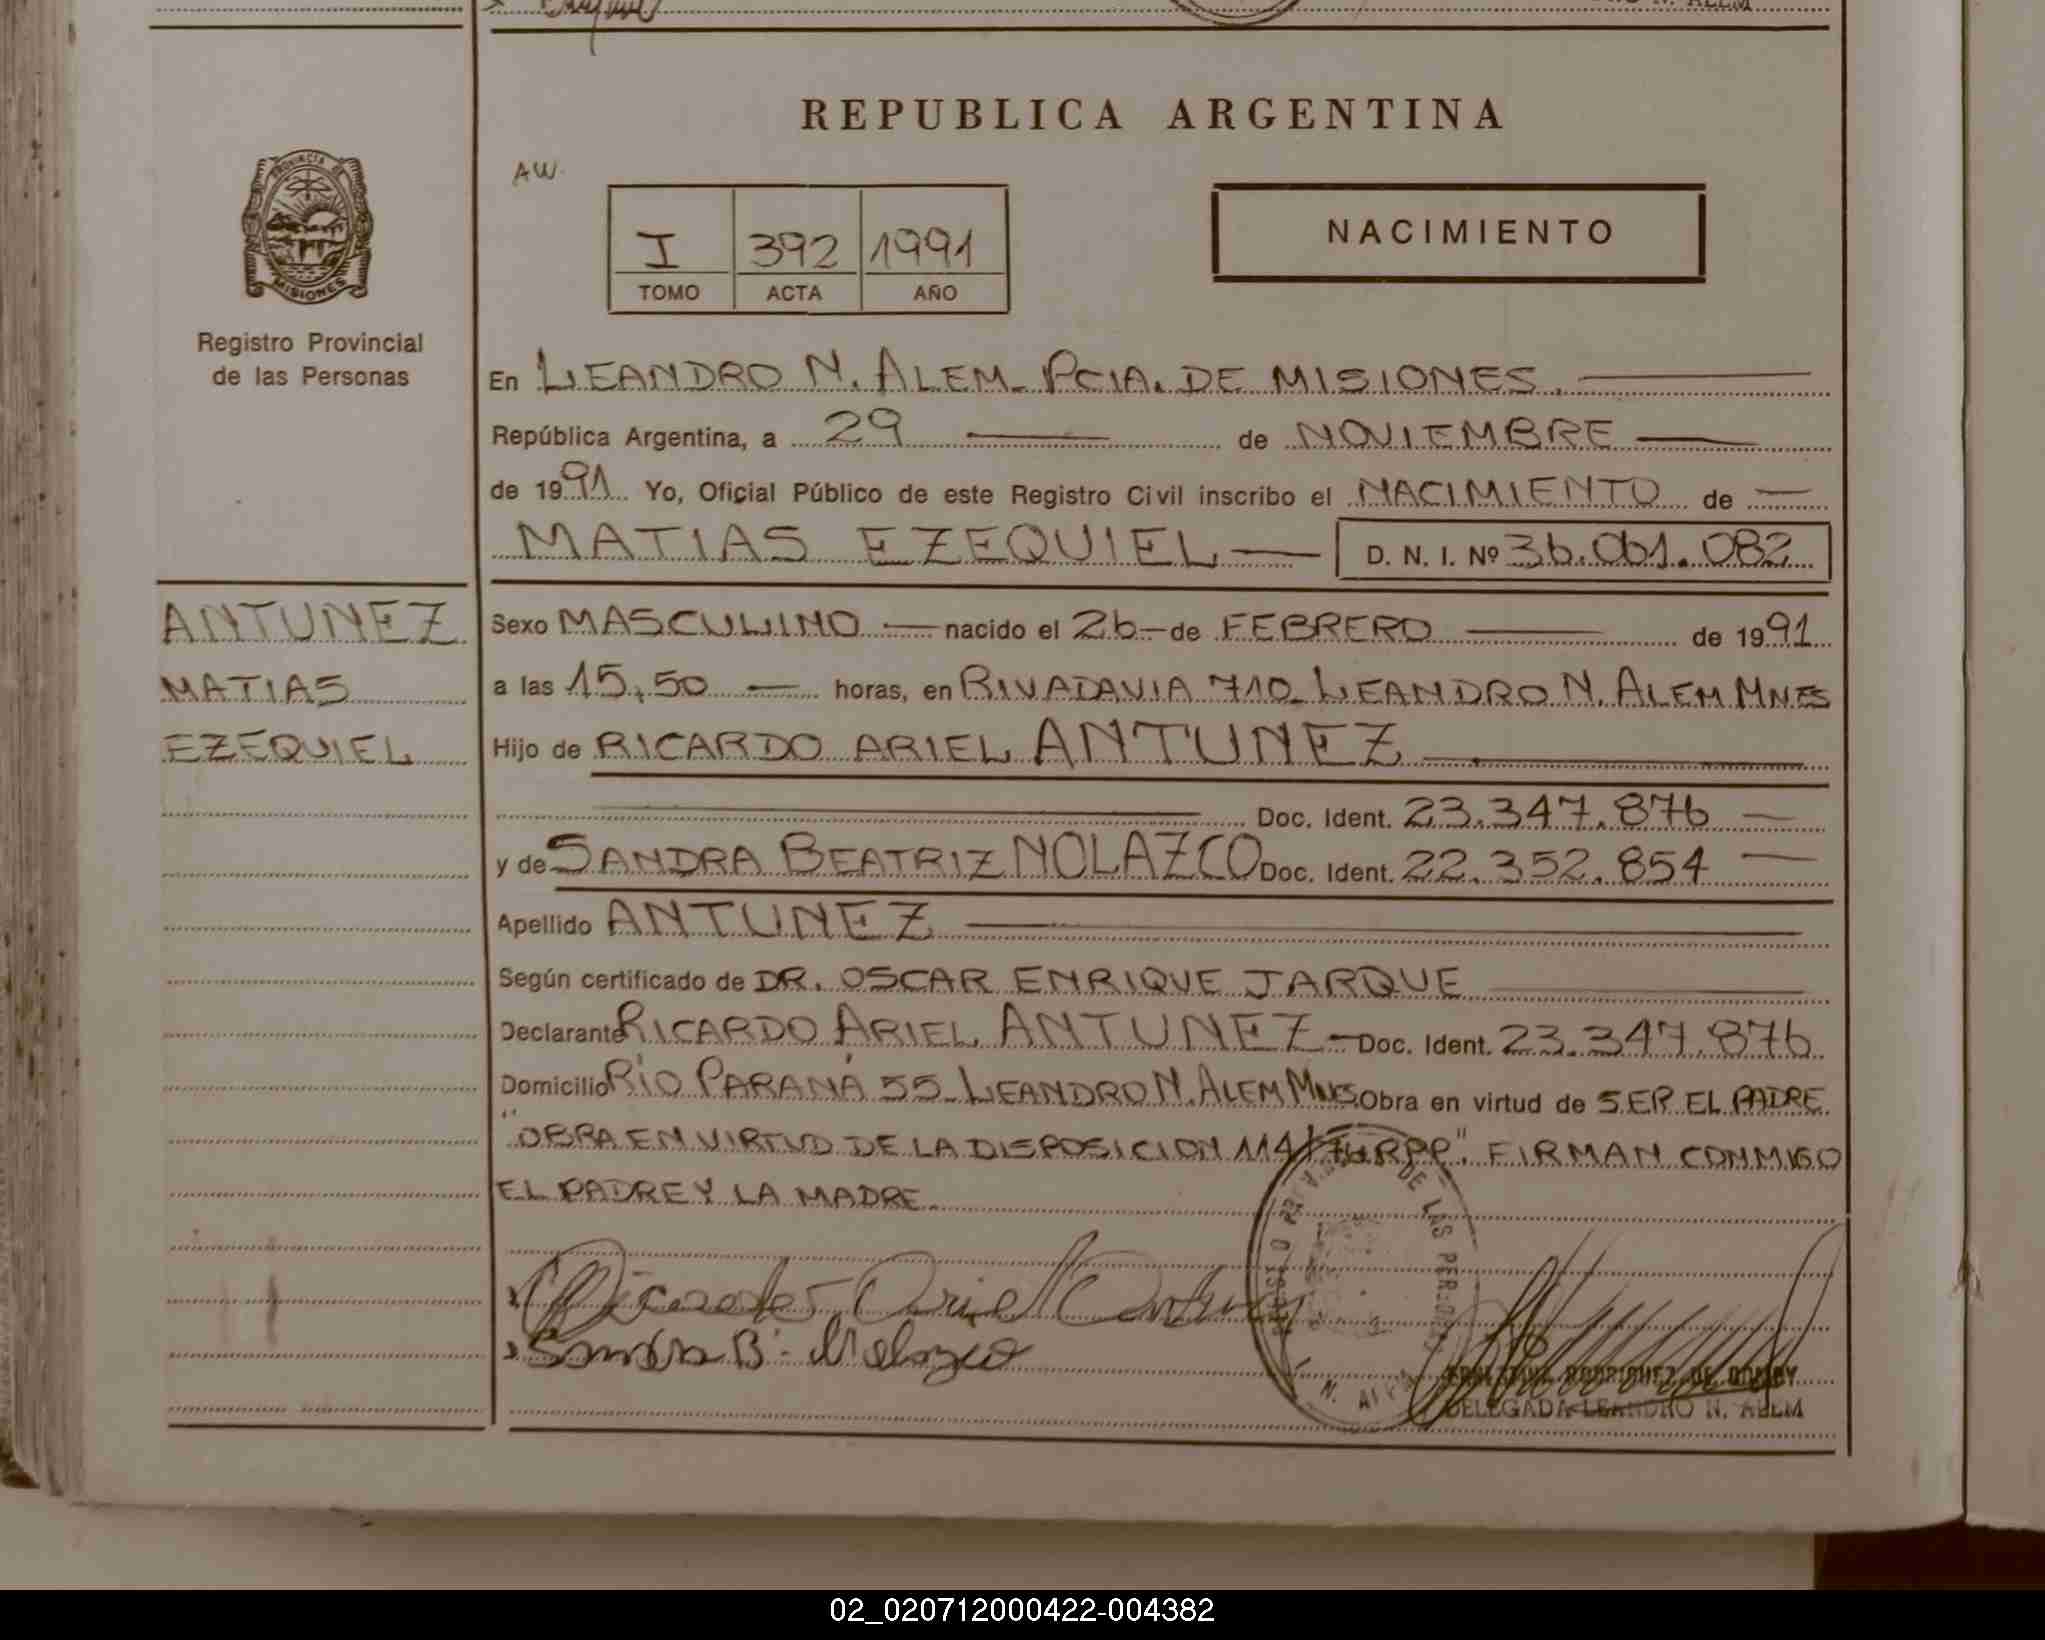 N. ALEM
REPUBLICA ARGENTINA
AW.
I 392 1991
TOMO ACTA AÑO
NACIMIENTO
PROVINCIA DE
MISIONES
Registro Provincial
de las Personas
En LEANDRO N. ALEM. PCIA. DE MISIONES.
República Argentina, a 29 de NOVIEMBRE
de 1991 Yo, Oficial Público de este Registro Civil inscribo el NACIMIENTO de
MATIAS EZEQUIEL D. N. I. Nº 36.061.082
ANTUNEZ
MATIAS
EZEQUIEL
Sexo MASCULINO nacido el 26 de FEBRERO de 1991
a las 15,50 horas, en RIVADAVIA 710_ LEANDRO N. ALEM MNES
Hijo de RICARDO ARIEL ANTUNEZ
Doc. Ident. 23.347.876
y de SANDRA BEATRIZ NOLAZCO Doc. Ident. 22.352.854
Apellido ANTUNEZ
Según certificado de DR. OSCAR ENRIQUE JARQUE
Declarante RICARDO ARIEL ANTUNEZ Doc. Ident. 23.347.876
Domicilio RÍO PARANÁ 55_ LEANDRO N. ALEM MNES. Obra en virtud de SER EL PADRE.
"OBRA EN VIRTUD DE LA DISPOSICION 114/76RPP". FIRMAN CONMIGO
EL PADRE Y LA MADRE.
DE LAS PERSONAS
N. ALEM
Ricardo Ariel Antunez
Sandra B. Nolazco
RODRIGUEZ DE
DELEGADA LEANDRO N. ALEM
02_020712000422-004382